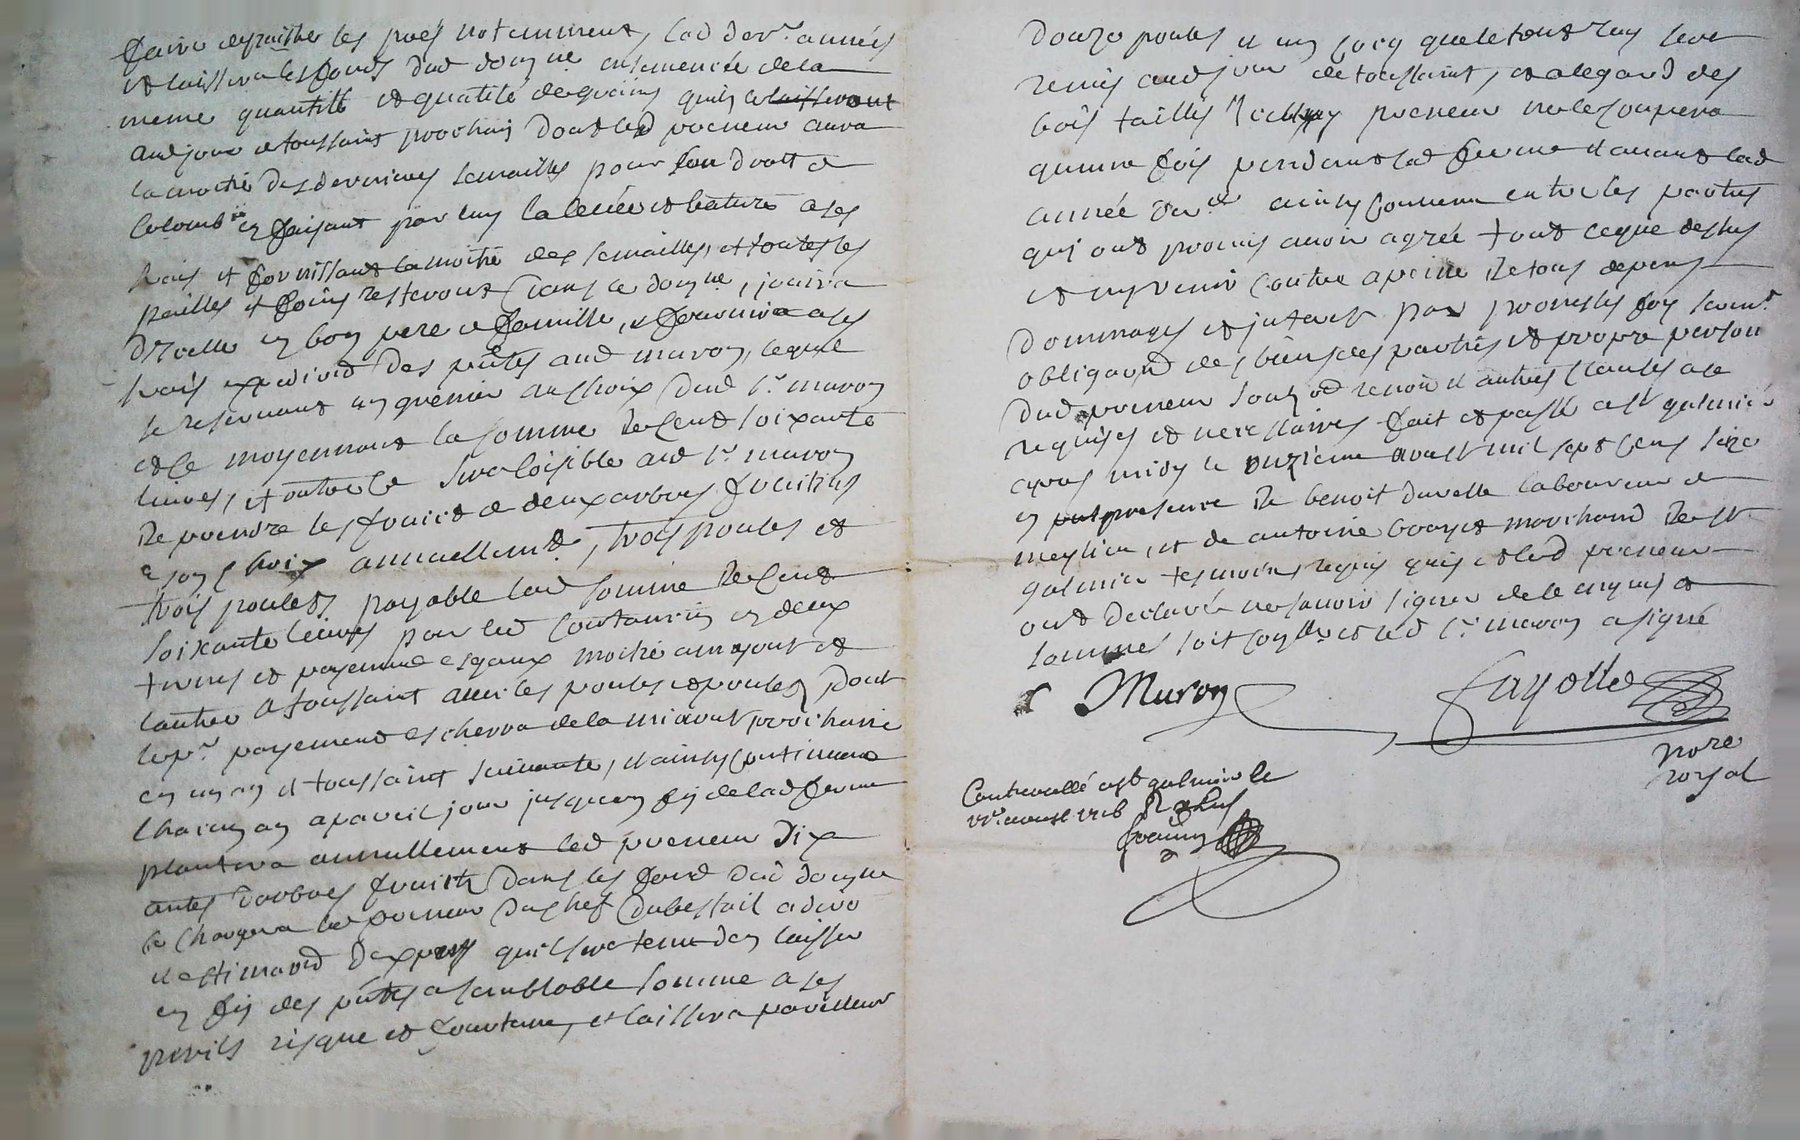 faire les prés notamment, lad der.e année
et laissera les fonds dud dom.ne ensemencée de la
meme quantité et qualité de grains quils laisseront
aud jour de toussaint prochain dont led preneur aura
la moitié des dernieres semailles pour son droit de
en faisant par luy la levée et bature a ses
frais et fournissant la moitié des semailles, et toutes les
pailles et foins resteront dans ce dom.ne, jouira
dicelle en bon pere de famille, & fournira a ses
frais expedié des pntes aud muron, lequel
se reservant un grenier au choix dud s.r muron
et ce moyennant la somme de cent soixante
livres, et outre ce sera loisible aud s.r muron
de prendre les fruits de deux arbres fruitiers
a son choix annuellemt, trois poules et
trois poulets payable lad somme de cent
soixante livres par led en deux
termes et payemens esgaux moitié a my aout et
lautre a toussaint avec les poules et poulets, dont
le p.r payement escherra de la miaout prochaine
en un an et toussaint suivante, et ainsy continuera
chacun an a pareil jour jusquen fin de lad ferme
plantera annuellement led preneur dix
antes darbres fruitiers dans les fond dud dom.ne
se chargera led preneur du chef du bestail a dire
et estimaon dexpers quil sera tenu den laisser
en fin des pntes a semblable somme a ses
perils risque et fourtune, et laissera pareillemt
douze poules et un cocq quelle tout luy sera
remis aud jour de toussaint, et a legard des
bois taillis led preneur ne le coupera
quune fois pendant lad ferme et avant lad
année der.e ainsy convenu entre les parties
qui ont promis avoir agréé tout ce que dessus
et ny venir contre a peine de tous depens
dommages et interest par promesses foy serm.t
obligaond des biens des parties et propre person
dud preneur soub od renon et autres clauses a ce
requises et necessaires fait et passé a st galmier
apres midy le onzieme aoust mil sept cens seize
en presence de benoit duvelle laboureur de
meylieu, et de antoine marchand de st
galmier tesmoins requis quis et led preneur
ont declaré ne savoir signer de ce enquis et
sommes soit con.llé et led s.r muron a signé
Muron
fayolle
no.re
royal
Controollé a st galmier le
aoust 1716